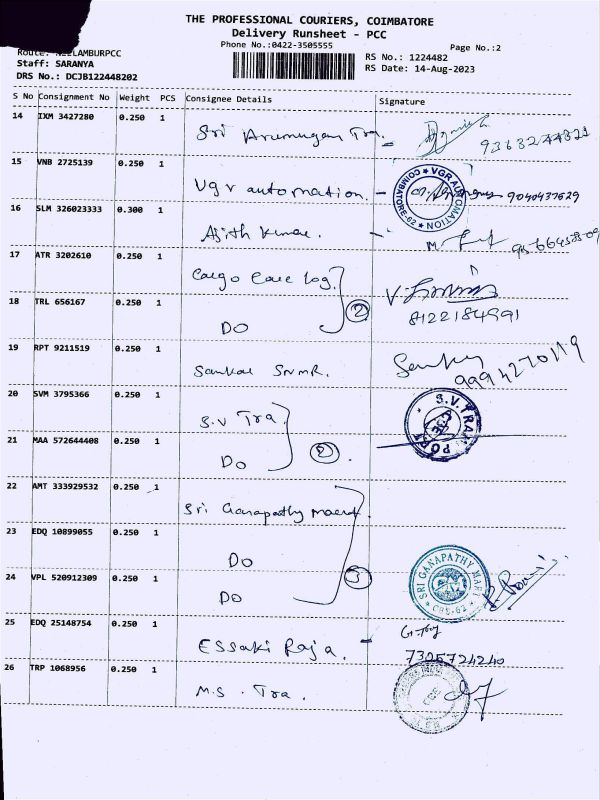 THE PROFESSIONAL COURIERS, COIMBATORE
Delivery Runsheet - PCC
Phone No.:0422-3505555
Page No.:2
Route: NEELAMBURPCC
Staff: SARANYA
DRS No.: DCJB122448202
RS No.: 1224482
RS Date: 14-Aug-2023
S No Consignment No Weight PCS Consignee Details Signature
14 IXM 3427280 0.250 1 Sri Arumugan Tra. 9363244821
15 VNB 2725139 0.250 1 Vgv automation. - COIMBATORE-62 VGR AUTOMATION 9040437629
16 SLM 326023333 0.300 1 Ajith Kumar. -
17 ATR 3202610 0.250 1 Cargo Care Log.
18 TRL 656167 0.250 1 DO 2 8122184991
19 RPT 9211519 0.250 1 Sankar SNMR. 9994270119
20 SVM 3795366 0.250 1 S.V Tra. S.V. TRAN
21 MAA 572644408 0.250 1 DO 2. PORT
22 AMT 333929532 0.250 1 Sri Ganapathy
23 EDQ 10899055 0.250 1 DO
24 VPL 520912309 0.250 1 DO 3 SRI GANAPATHY MART CBE-62
25 EDQ 25148754 0.250 1 Essaki Raja. - 7305724240
26 TRP 1068956 0.250 1 M.S. Tra.